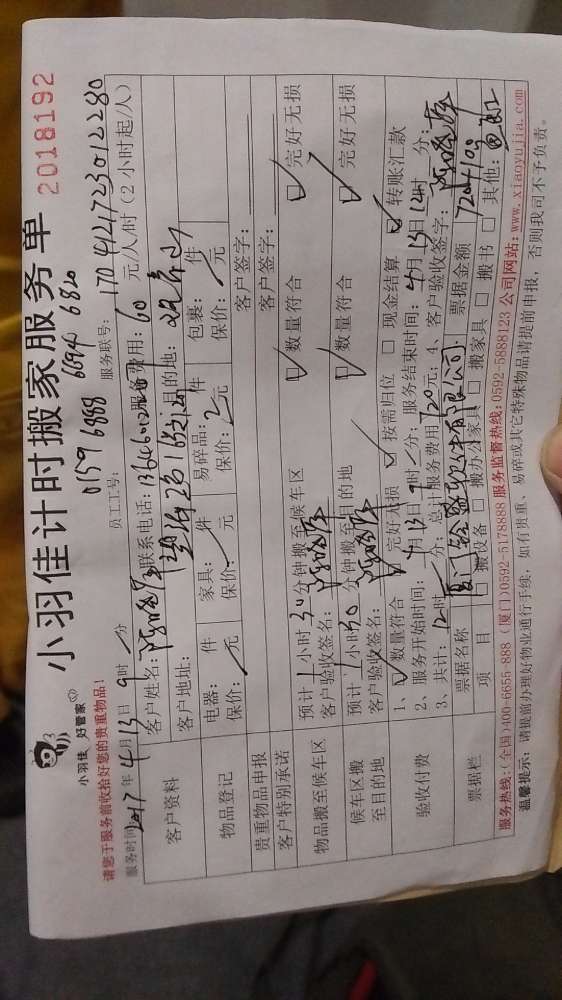 小羽佳计时搬家服务单
2018192
小羽佳 好管家
请您于服务前收拾好您的贵重物品!
01596888 66944 6820
服务时间:2017年4月13日9时 分 员工工号: 服务联号: 1704121723012280
客户资料 客户姓名: 联系电话: 服务费用:60元/人/时(2小时起/人)
客户地址: 目的地:
物品登记 电器: 件 家具: 件 易碎品: 件 包裹: 件
保价: 元 保价: 元 保价: 元 保价: 元
贵重物品申报 客户签字:
客户特别承诺 客户签字:
物品搬至候车区 预计1小时30分钟搬至候车区 数量符合 完好无损
客户验收签名:
候车区搬至目的地 预计1小时30分钟搬至目的地 数量符合 完好无损
客户验收签名:
验收付费 1、数量符合 完好无损 按需归位 现金结算 转账汇款
2、服务开始时间:4月13日9时 分;服务结束时间:4月13日12时 分;
3、共计:12时 分;总计服务费用720元;4、客户验收签字:
票据栏 票据名称 厦门 有限公司 票据金额 720
项目 搬设备 搬办公家具 搬家具 搬书 其他:
服务热线:(全国)400-6655-888 (厦门)0592-5178888 服务监督热线:0592-5888123 公司网站:www.xiaoyujia.com
温馨提示:请提前办理好物业通行手续,如有贵重、易碎或其它特殊物品请提前申报,否则我司不予负责。